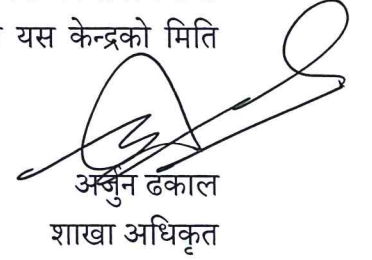 यस केन्द्रको मिति
अर्जुन ढकाल
शाखा अधिकृत